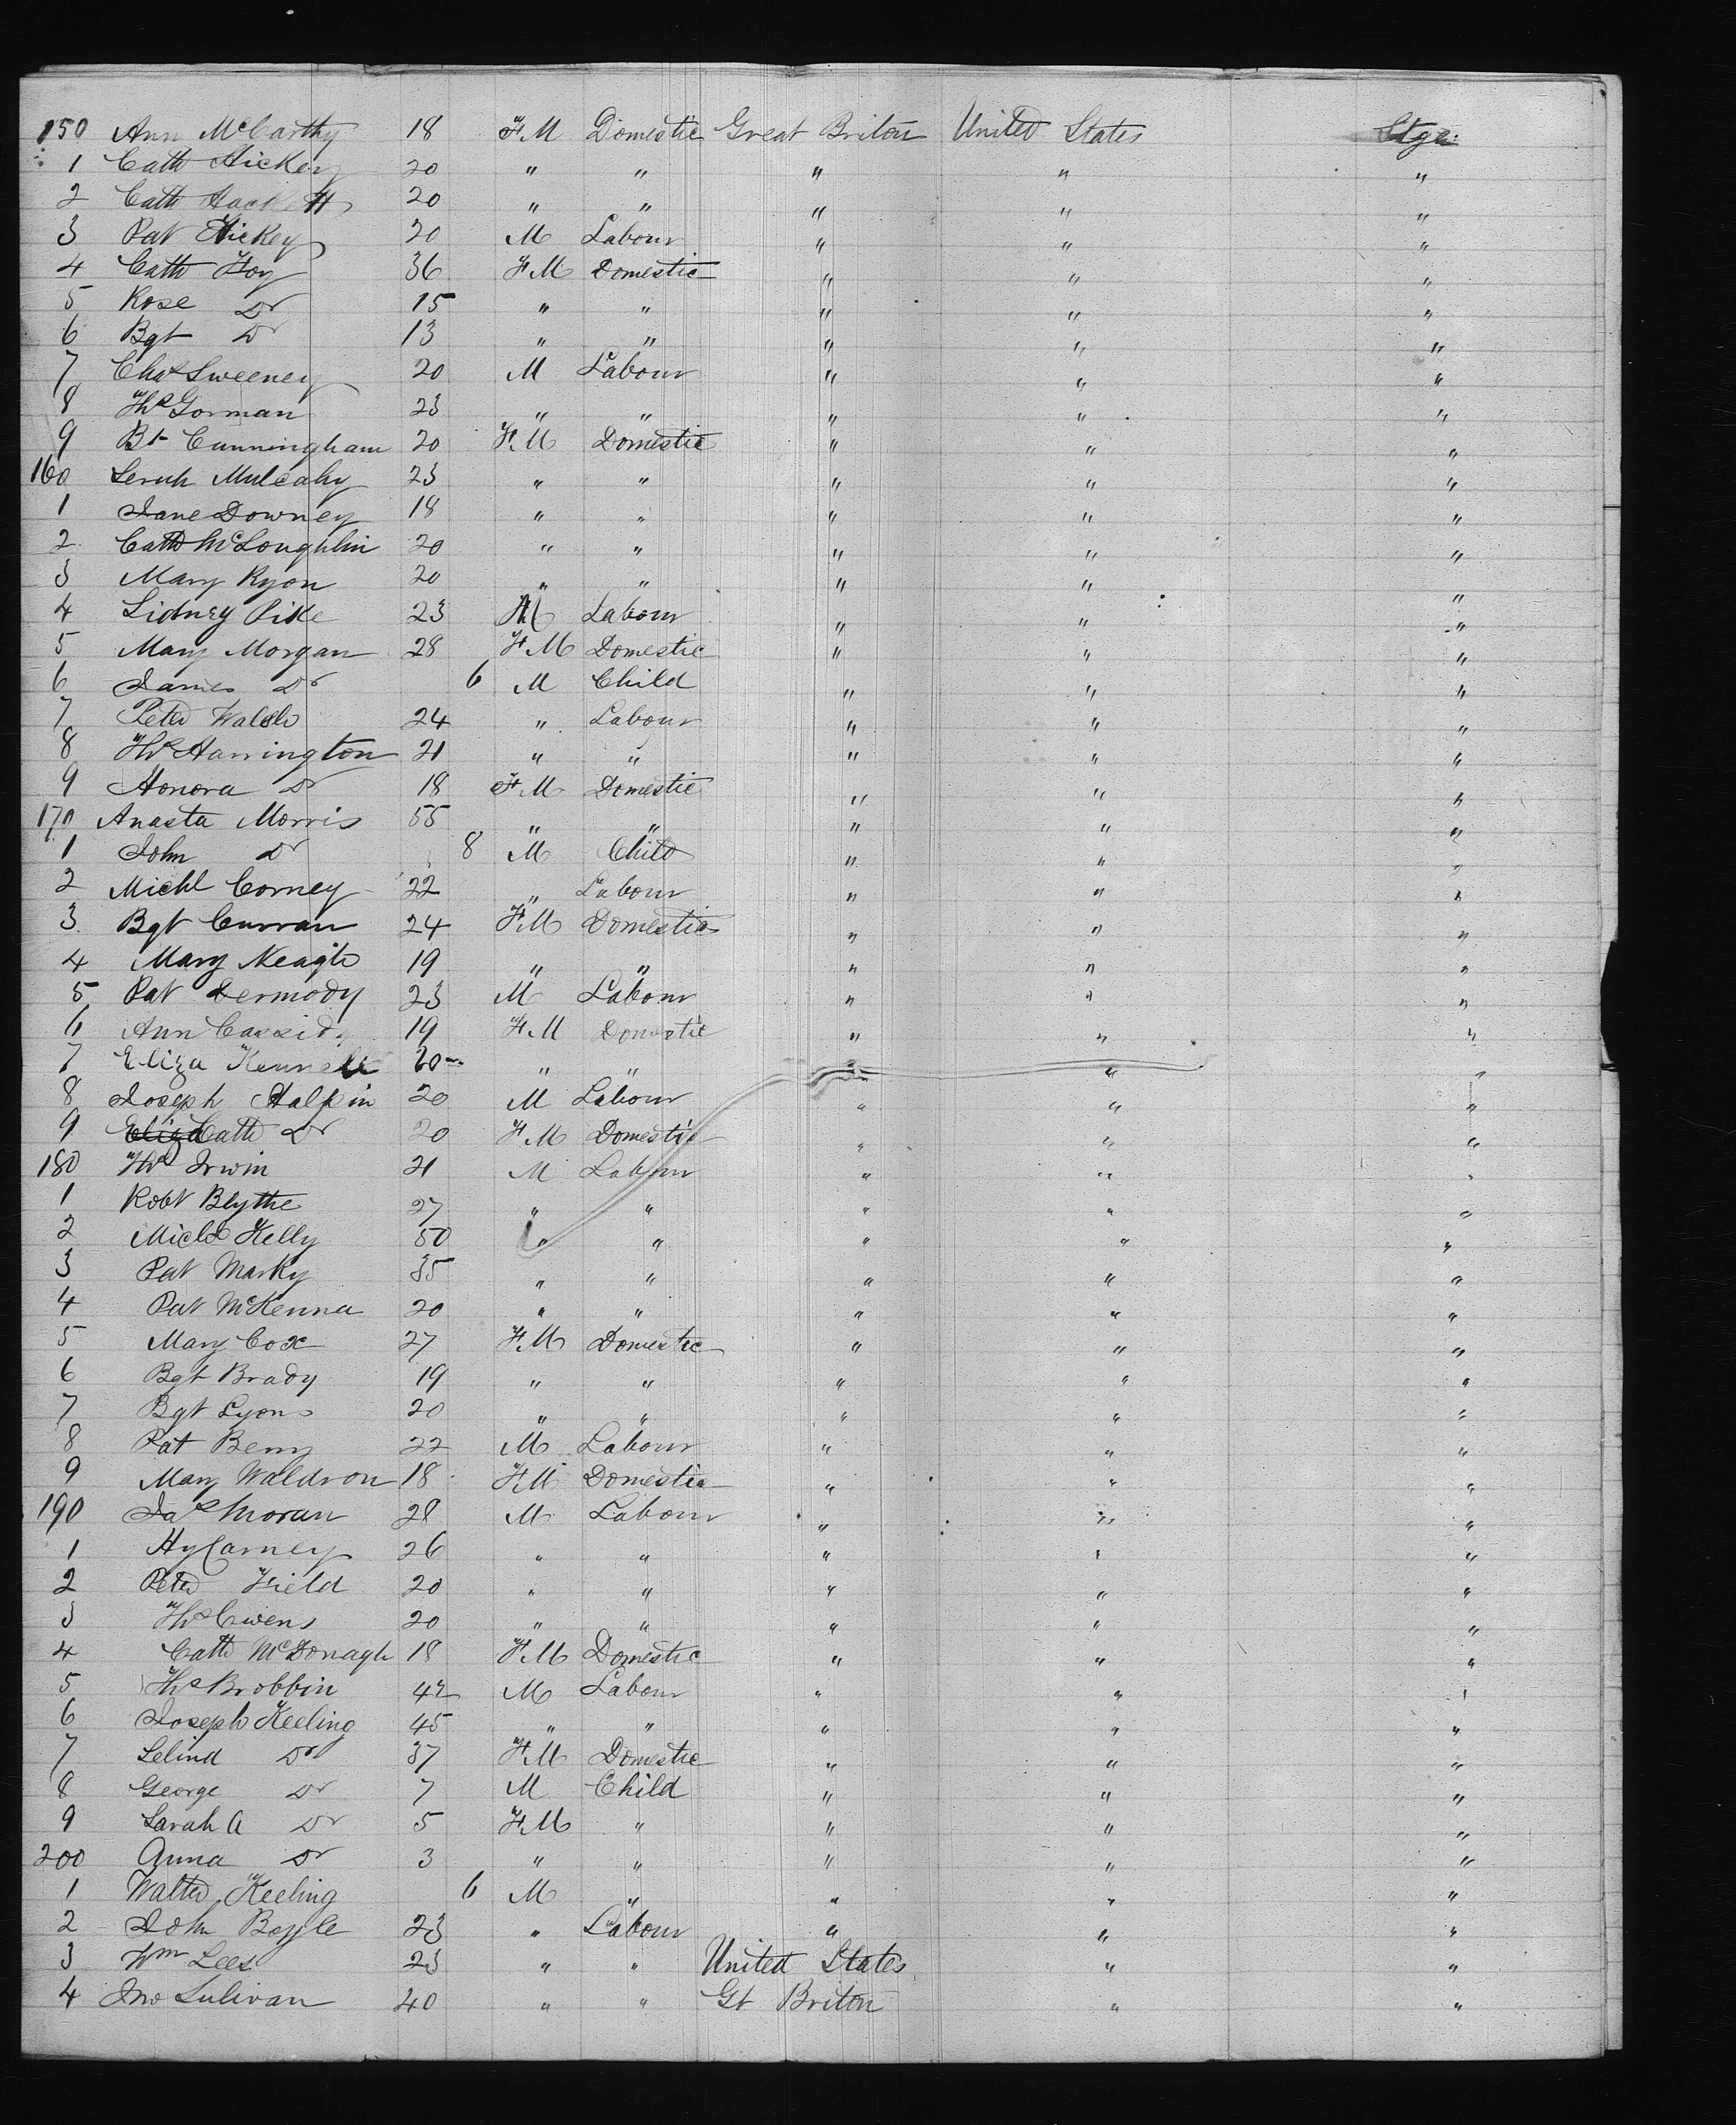 150 Ann McCarthy 18 FM Domestic Great Briton United States Stge
1 Cath Hickey 20 " " " " "
2 Cath Hackett 20 " " " " "
3 Pat Hickey 20 M Labour " " "
4 Cath Hoy 36 FM Domestic " " "
5 Rose Do 15 " " " " "
6 Bgt Do 13 " " " " "
7 Chas Sweeney 20 M Labour " " "
8 Ths Gorman 23 " " " " "
9 Bt Cunningham 20 FM Domestic " " "
160 Serah Mulcahy 23 " " " " "
1 Jane Downey 18 " " " " "
2 Cath McLoughlin 20 " " " " "
3 Mary Ryon 20 " " " " "
4 Sidney Pike 23 M Labour " " "
5 Mary Morgan 28 FM Domestic " " "
6 James Do 6 M Child " " "
7 Peter Walsh 24 " Labour " " "
8 Ths Harrington 21 " " " " "
9 Honora Do 18 FM Domestic " " "
170 Anasta Morris 55 " " " " "
1 John Do 8 M Child " " "
2 Michl Corney 22 " Labour " " "
3 Bgt Curran 24 FM Domestic " " "
4 Mary Neagh 19 " " " " "
5 Pat Dermody 23 M Labour " " "
6 Ann Cassidy 19 FM Domestic " " "
7 Eliza 20 " " " "
8 Joseph Halpin 20 M Labour " " "
9 Eliza Cath Do 20 FM Domestic " " "
180 Ths Irwin 21 M Labour " " "
1 Robt Blythe 27 " " " " "
2 Michl Kelly 50 " " " " "
3 Pat Marky 35 " " " " "
4 Pat McKenna 20 " " " " "
5 Mary Cox 27 FM Domestic " " "
6 Bgt Brady 19 " " " " "
7 Bgt Lyons 20 " " " " "
8 Pat Berry 22 M Labour " " "
9 Mary Waldron 18 FM Domestic " " "
190 Jas Moran 28 M Labour " " "
1 Hy Carney 26 " " " " "
2 Peter Field 20 " " " " "
3 Ths Owens 20 " " " " "
4 Cath McDonagh 18 FM Domestic " " "
5 Ths Brobbin 42 M Labour " " "
6 Joseph Keeling 45 " " " " "
7 Selind Do 37 FM Domestic " " "
8 George Do 7 M Child " " "
9 Sarah A Do 5 FM " " " "
200 Anna Do 3 " " " " "
1 Walter Keeling 6 M " " " "
2 John Boyle 23 " Labour " " "
3 Wm Lees 23 " " United States " "
4 Jno Sulivan 40 " " Gt Briton " "